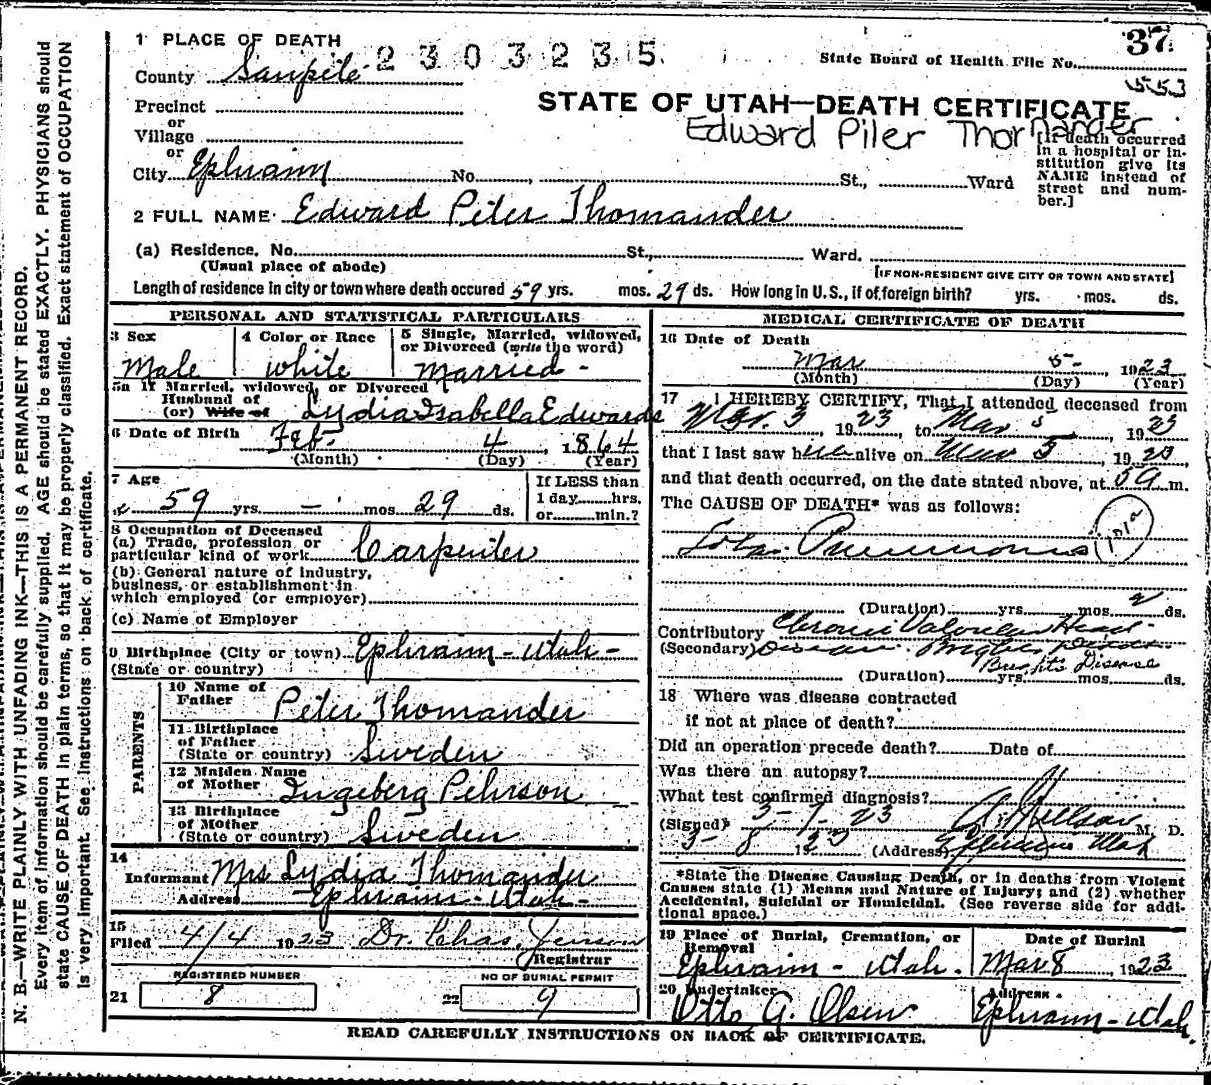 37
1 PLACE OF DEATH
2303235
County Sanpete
State Board of Health File No.
553
Precinct
STATE OF UTAH—DEATH CERTIFICATE
or
Edward Piter Thomander
Village
or
City Ephraim No. , St., Ward
[If death occurred in a hospital or in-
stitution give its
NAME instead of
street and num-
ber.]
2 FULL NAME Edward Piter Thomander
(a) Residence, No. St., Ward.
(Usual place of abode)
[IF NON-RESIDENT GIVE CITY OR TOWN AND STATE]
Length of residence in city or town where death occured 59 yrs. mos. 29 ds. How long in U.S., if of foreign birth? yrs. mos. ds.
PERSONAL AND STATISTICAL PARTICULARS
3 Sex
Male
4 Color or Race
white
5 Single, Married, widowed,
or Divorced (write the word)
Married -
5a If Married, widowed, or Divorced
Husband of
(or) Wife of Lydia Isabella Edwards
6 Date of Birth Feb. 4, 1864
(Month) (Day) (Year)
7 Age
59 yrs. — mos. 29 ds.
If LESS than
1 day hrs.
or min.?
8 Occupation of Deceased
(a) Trade, profession or
particular kind of work Carpenter
(b) General nature of industry,
business, or establishment in
which employed (or employer)
(c) Name of Employer
9 Birthplace (City or town) Ephraim - Utah -
(State or country)
PARENTS
10 Name of
Father Peter Thomander
11 Birthplace
of Father
(State or country) Sweden
12 Maiden Name
of Mother Ingeberg Pehrson
13 Birthplace
of Mother
(State or country) Sweden
14
Informant Mrs Lydia Thomander
Address Ephraim - Utah -
15
Filed 4/4 1923 Dr. Chas. Jenson
Registrar
REGISTERED NUMBER
21 8
NO OF BURIAL PERMIT
22 9
MEDICAL CERTIFICATE OF DEATH
16 Date of Death
Mar 5 - 1923
(Month) (Day) (Year)
17 I HEREBY CERTIFY, That I attended deceased from
Mar. 3, 1923, to Mar 5, 1923
that I last saw h alive on Mar 5, 1923,
and that death occurred, on the date stated above, at 5 a m.
The CAUSE OF DEATH* was as follows:
Lobar Pneumonia
101a
(Duration) yrs. mos. 2 ds.
Contributory Chronic Valvular Heart
(Secondary) Disease. Brights Disease
Bright's Disease
(Duration) yrs. mos. ds.
18 Where was disease contracted
if not at place of death?
Did an operation precede death? Date of
Was there an autopsy?
What test confirmed diagnosis?
3-7-23
(Signed) M. D.
3-8 1923 (Address) Ephraim Utah
*State the Disease Causing Death, or in deaths from Violent
Causes state (1) Means and Nature of Injury; and (2) whether
Accidental, Suicidal or Homicidal. (See reverse side for addi-
tional space.)
19 Place of Burial, Cremation, or
Removal
Ephraim - Utah.
Date of Burial
Mar 8, 1923
20 Undertaker
Otto G. Olsen
Address
Ephraim - Utah.
READ CAREFULLY INSTRUCTIONS ON BACK OF CERTIFICATE.
N. B.—WRITE PLAINLY WITH UNFADING INK—THIS IS A PERMANENT RECORD.
Every item of information should be carefully supplied. AGE should be stated EXACTLY. PHYSICIANS should
state CAUSE OF DEATH in plain terms, so that it may be properly classified. Exact statement of OCCUPATION
is very important. See instructions on back of certificate.